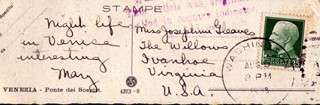 STAMPE
Night life
in Venice
interesting
Mary
Miss Josephine Gleaves
The Willows
Ivanhoe
Virginia
U.S.A.
VENEZIA - Ponte dei Sospiri